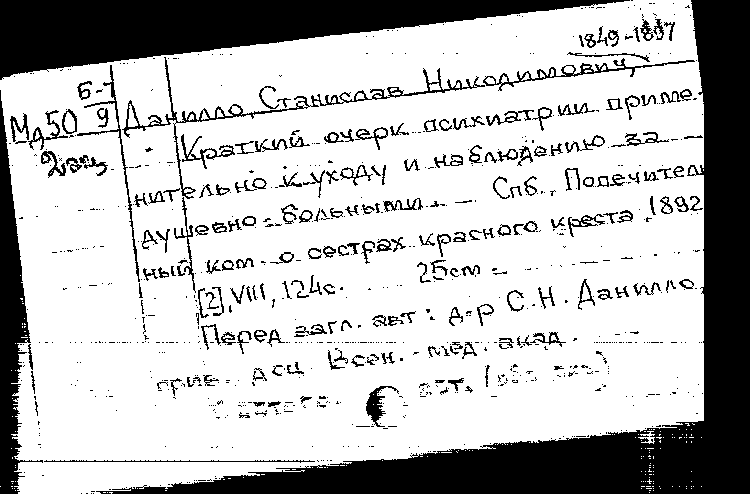 1849-1897
Б-7
Мд50 9 Данилло, Станислав Никодимович,
2экз. Краткий очерк психиатрии приме-
нительно к уходу и наблюдению за
душевно-больными. — Спб., Попечитель
ный ком. о сестрах красного креста, 1892
[2], VIII, 124с. 25см.
Перед загл. авт: д-р С.Н. Данилло,
прив. доц. Воен.-мед. акад.
авт.